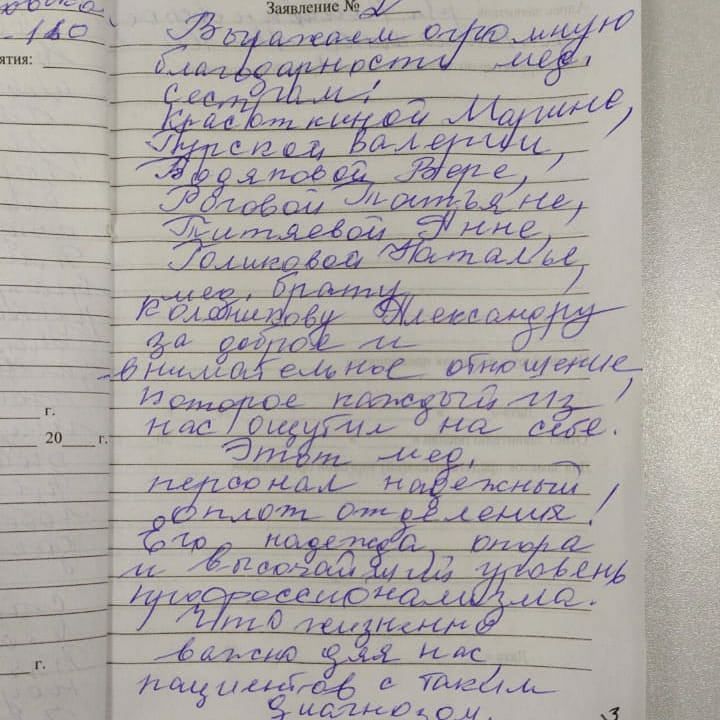 Заявление № 2
Выражаем огромную
благодарность мед.
сестрам:
Красоткиной Марине,
Гурской Валерии,
Водяновой Вере,
Роговой Татьяне,
Титяевой Анне,
Голиковой Наталье,
мед. брату
Колесникову Александру
за доброе и
внимательное отношение,
которое каждый из
нас ощутил на себе.
Этот мед.
персонал надежный
оплот отделения!
Его надежда, опора
и высочайший уровень
профессионализма.
Что жизненно
важно для нас,
пациентов с таким
диагнозом.
3
-110
ятия:
г.
20 г.
г.